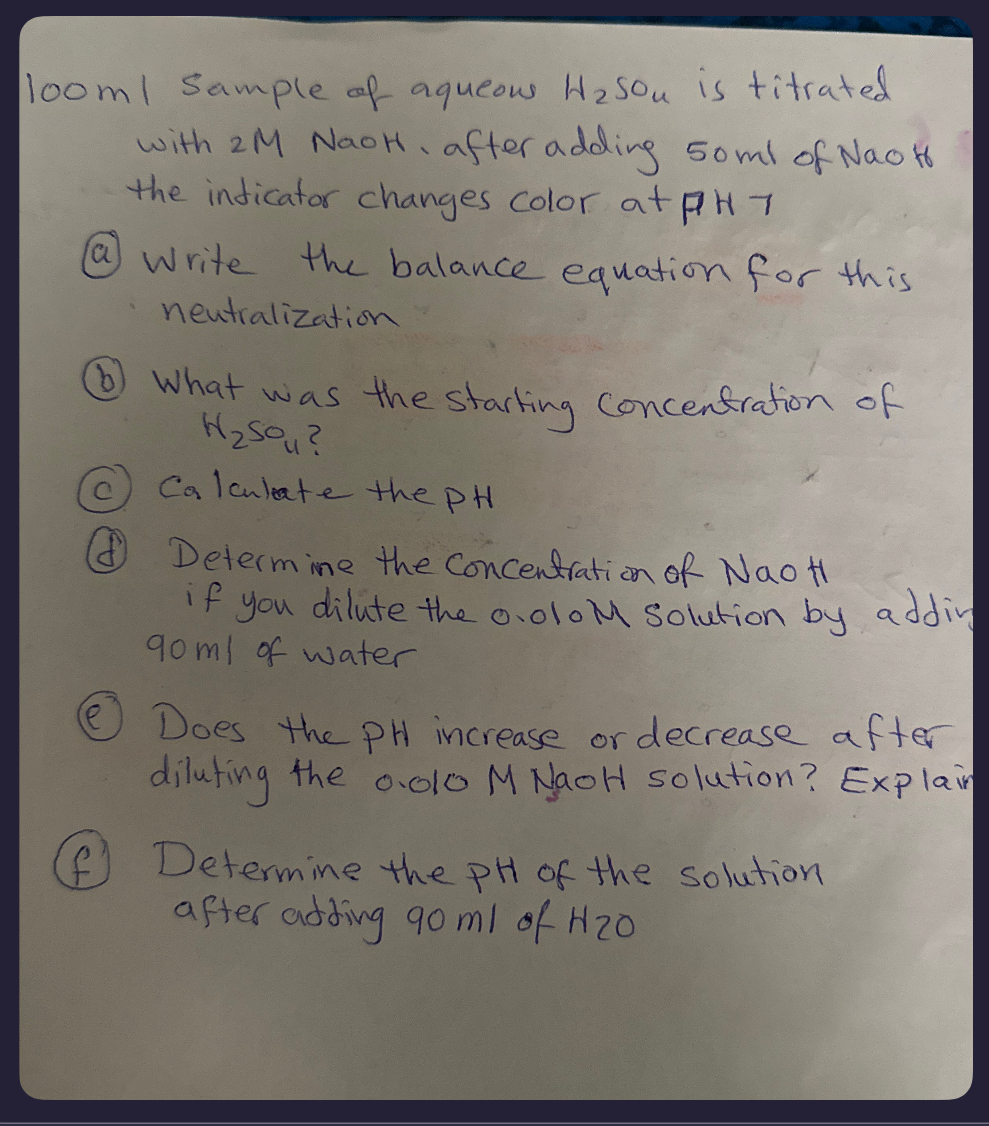 100ml Sample of aqueous H2SO4 is titrated
with 2M NaOH. after adding 50ml of NaOH
the indicator changes color at PH 7
(a) Write the balance equation for this
neutralization
(b) What was the starting concentration of
H2SO4?
(c) Calculate the pH
(d) Determine the concentration of NaOH
if you dilute the 0.010M solution by addin
90ml of water
(e) Does the pH increase or decrease after
diluting the 0.010 M NaOH solution? Explain
(f) Determine the pH of the solution
after adding 90ml of H2O